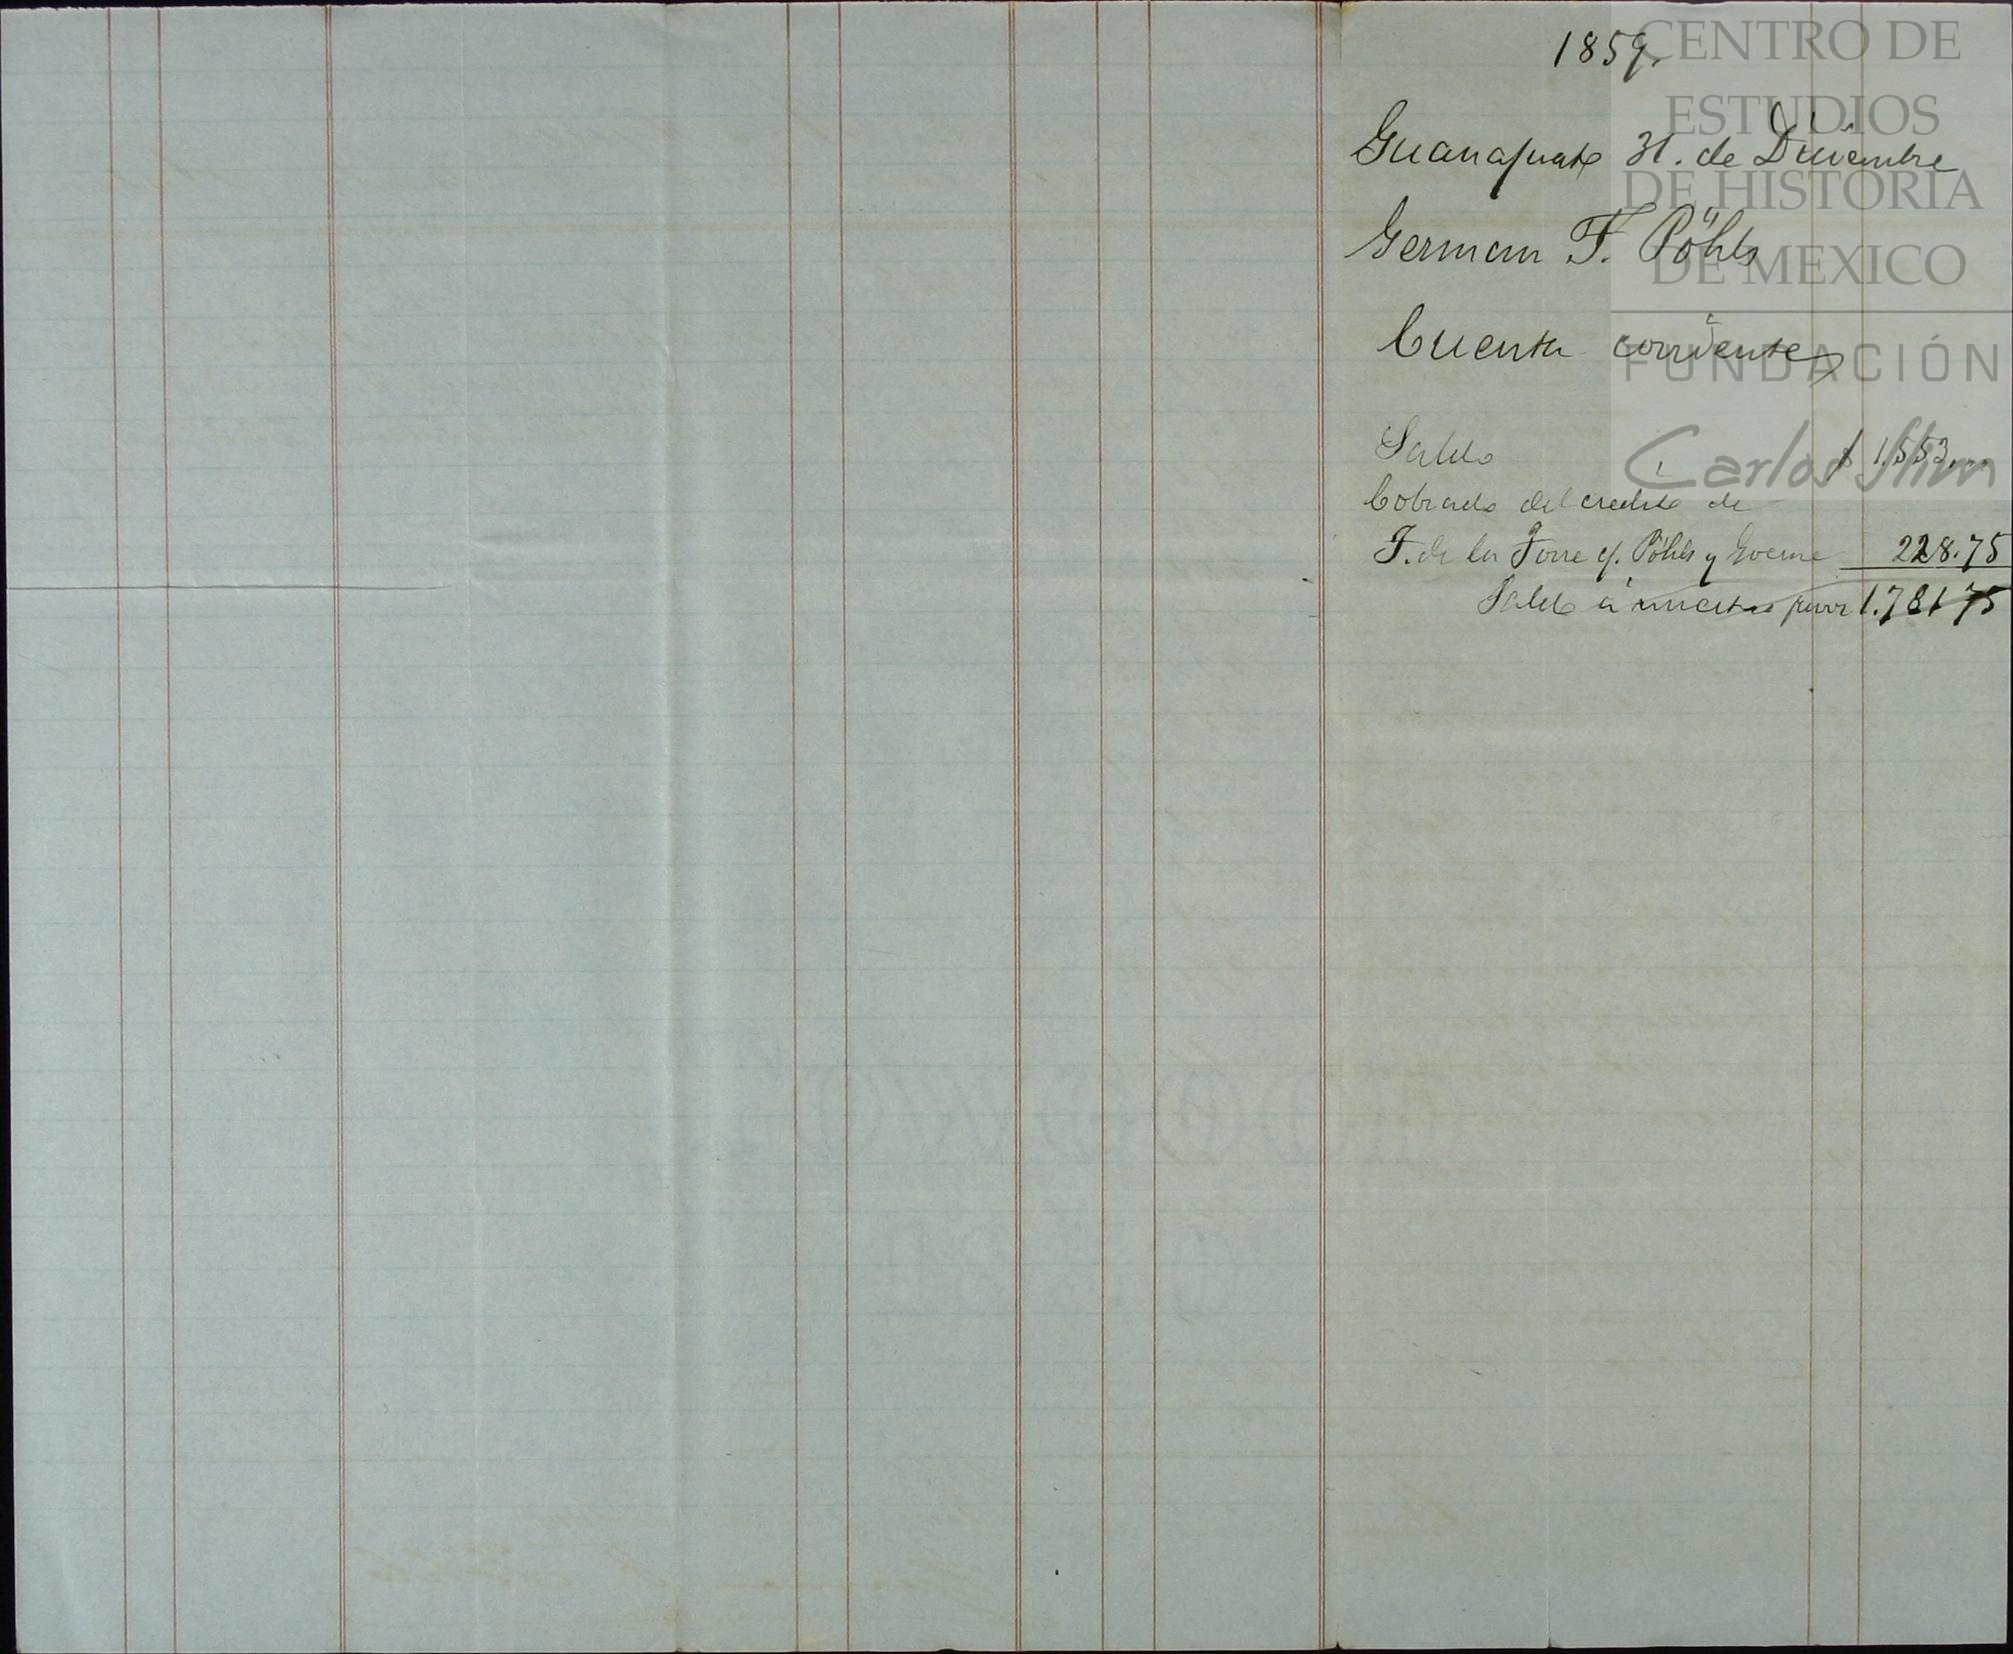 1859.
Guanajuato 31. de Diciembre
German F. Pöhls
Cuenta corriente
Saldo $ 1.553.,,
Cobrado del credito de
F. de la Torre c/. Pöhls y Goerne 228.75
Saldo á nuestro favor 1.781 75
CENTRO DE
ESTUDIOS
DE HISTORIA
DE MEXICO
FUNDACIÓN
Carlos Slim